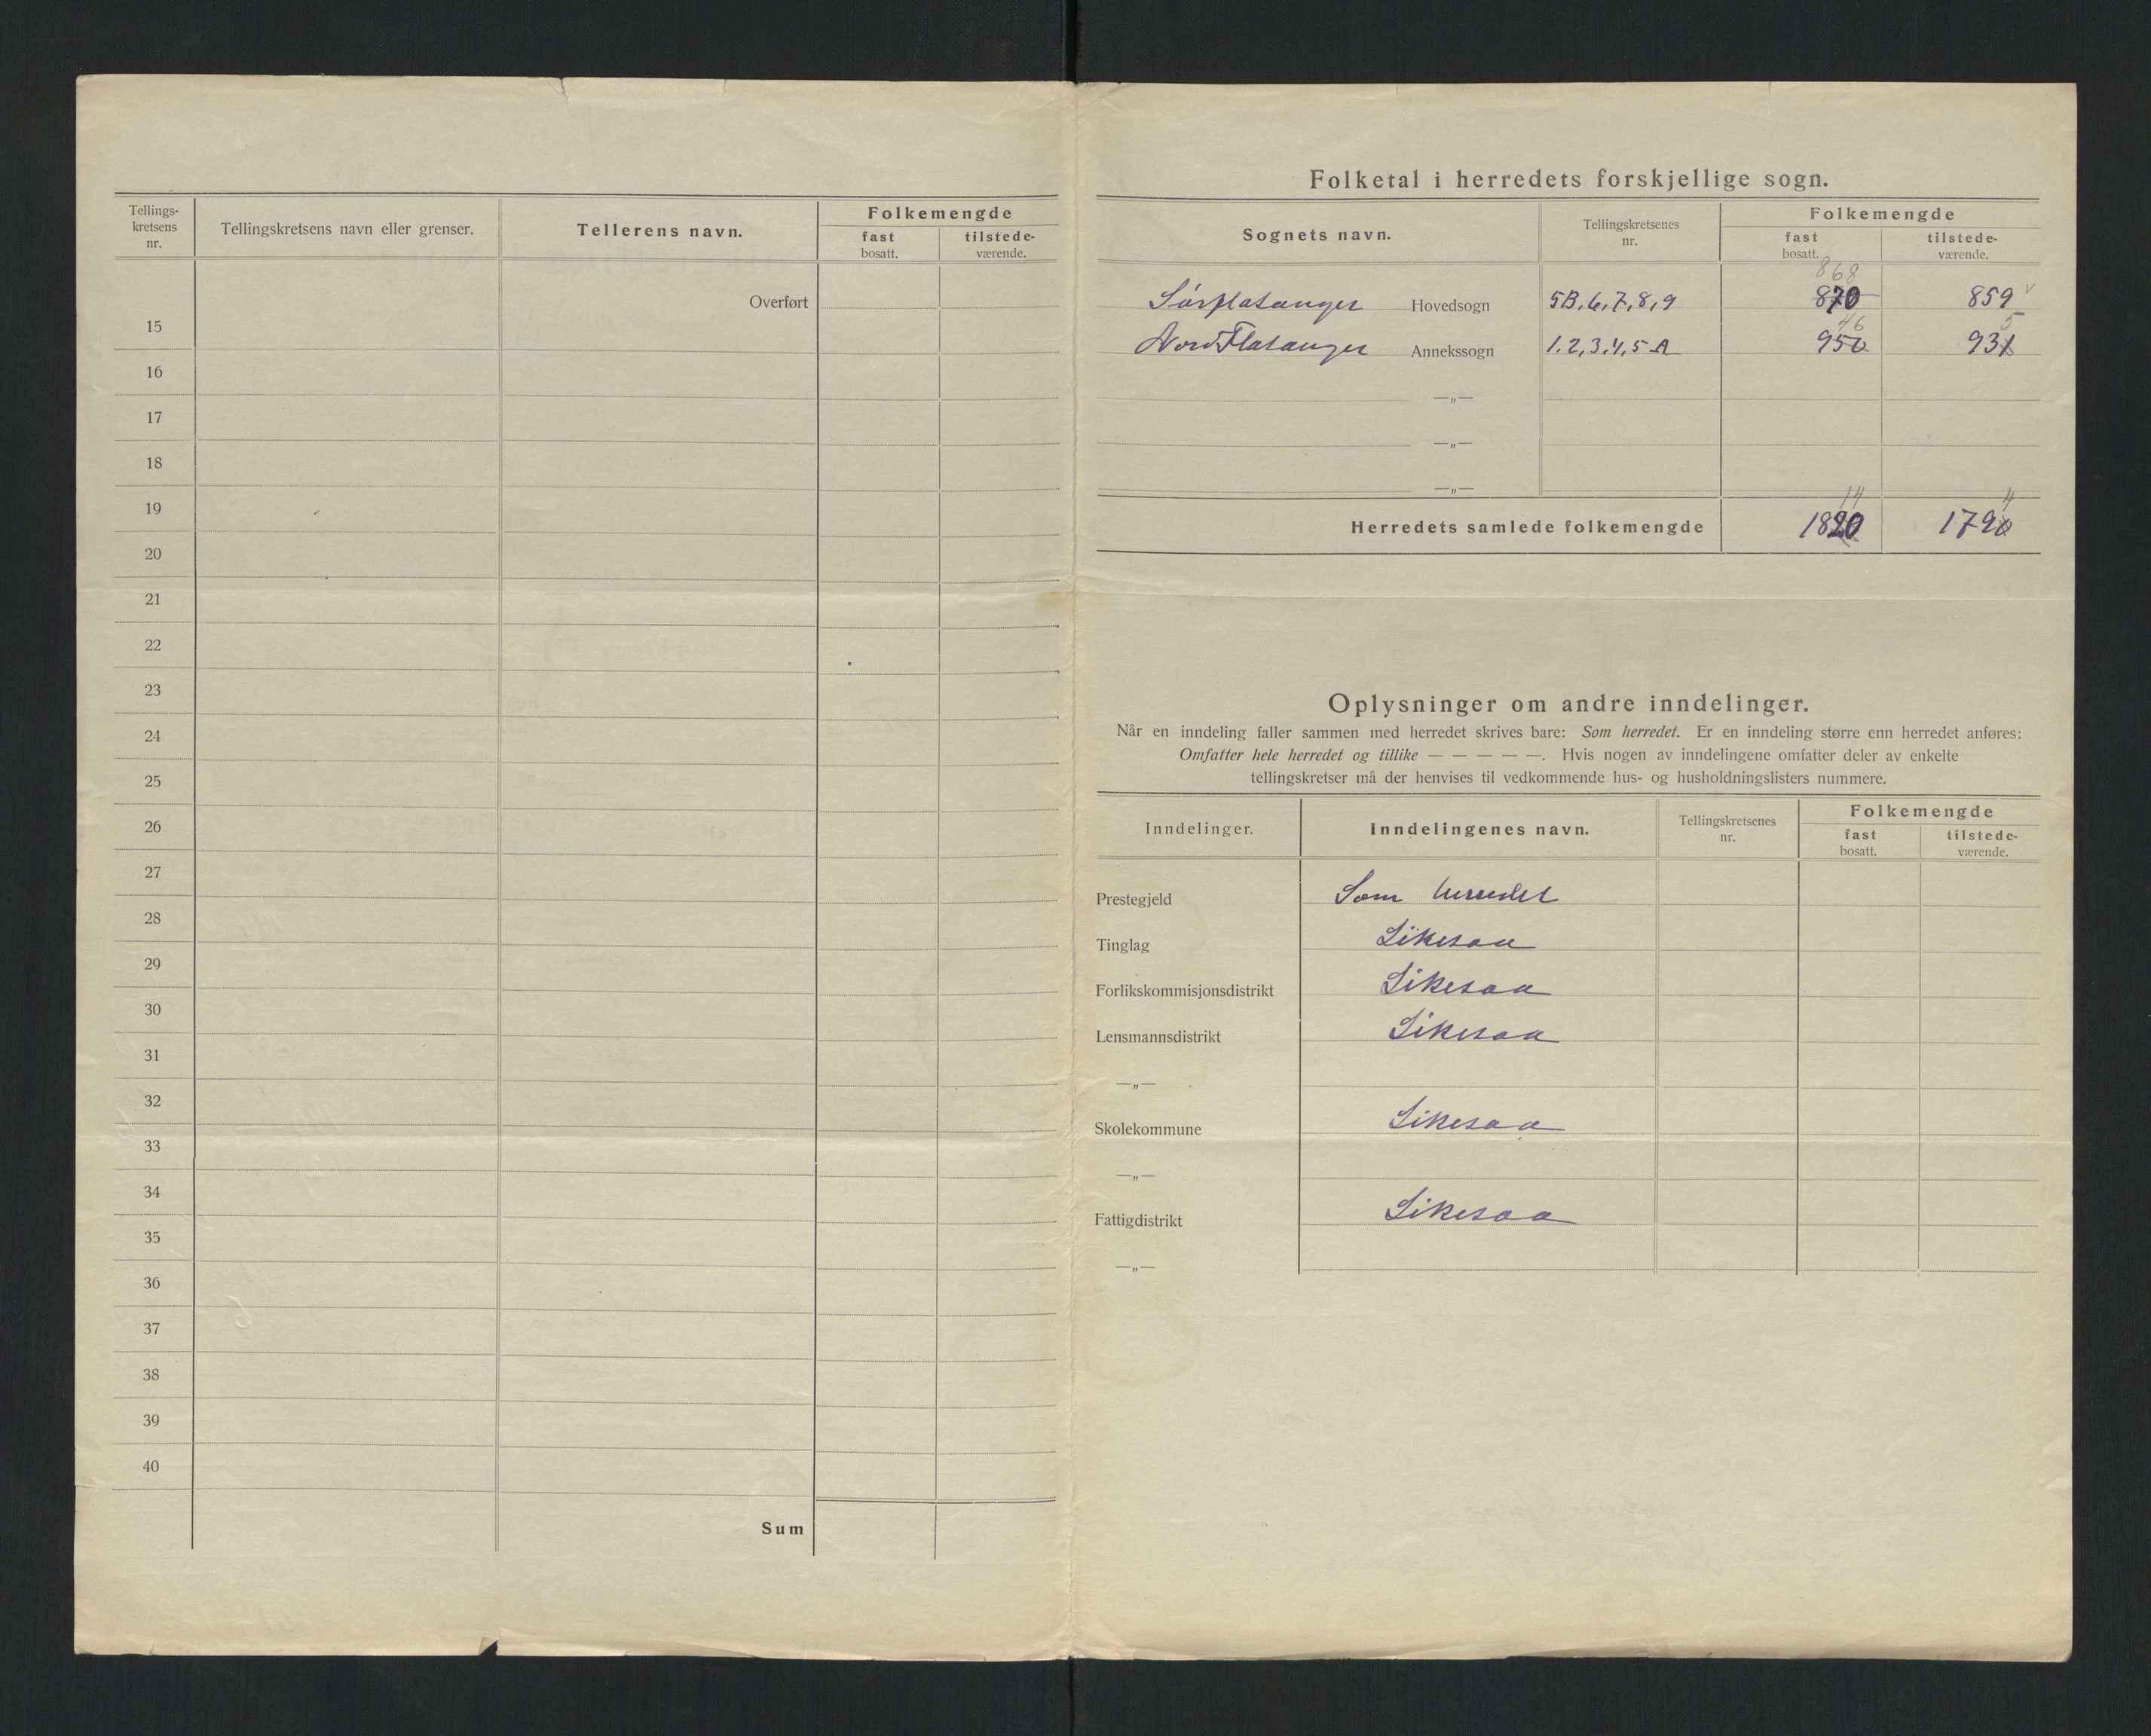 Tellings-
kretsens
nr.
Tellingskretsens navn eller grenser.
Tellerens navn.
Folkemengde
fast
bosatt.
tilstede-
værende.
Overført
15
16
17
18
19
20
21
22
23
24
25
26
27
28
29
30
31
32
33
34
35
36
37
38
39
40
Sum
Folketal i herredets forskjellige sogn.
Sognets navn.
Tellingskretsenes
nr.
Folkemengde
fast
bosatt.
tilstede-
værende.
868
Sörflatanger Hovedsogn 5B,6,7,8,9 870 859 v
46 5
Nord Flatanger Annekssogn 1,2,3,4,5 A 950 931
—„—
—„—
—„—
14 4
Herredets samlede folkemengde 1820 1790
Oplysninger om andre inndelinger.
Når en inndeling faller sammen med herredet skrives bare: Som herredet. Er en inndeling større enn herredet anføres:
Omfatter hele herredet og tillike — — — — —. Hvis nogen av inndelingene omfatter deler av enkelte
tellingskretser må der henvises til vedkommende hus- og husholdningslisters nummere.
Inndelinger.
Inndelingenes navn.
Tellingskretsenes
nr.
Folkemengde
fast
bosatt.
tilstede-
værende.
Prestegjeld Som herredet
Tinglag Likesaa
Forlikskommisjonsdistrikt Likesaa
Lensmannsdistrikt Likesaa
—„—
Skolekommune Likesaa
—„—
Fattigdistrikt Likesaa
—„—